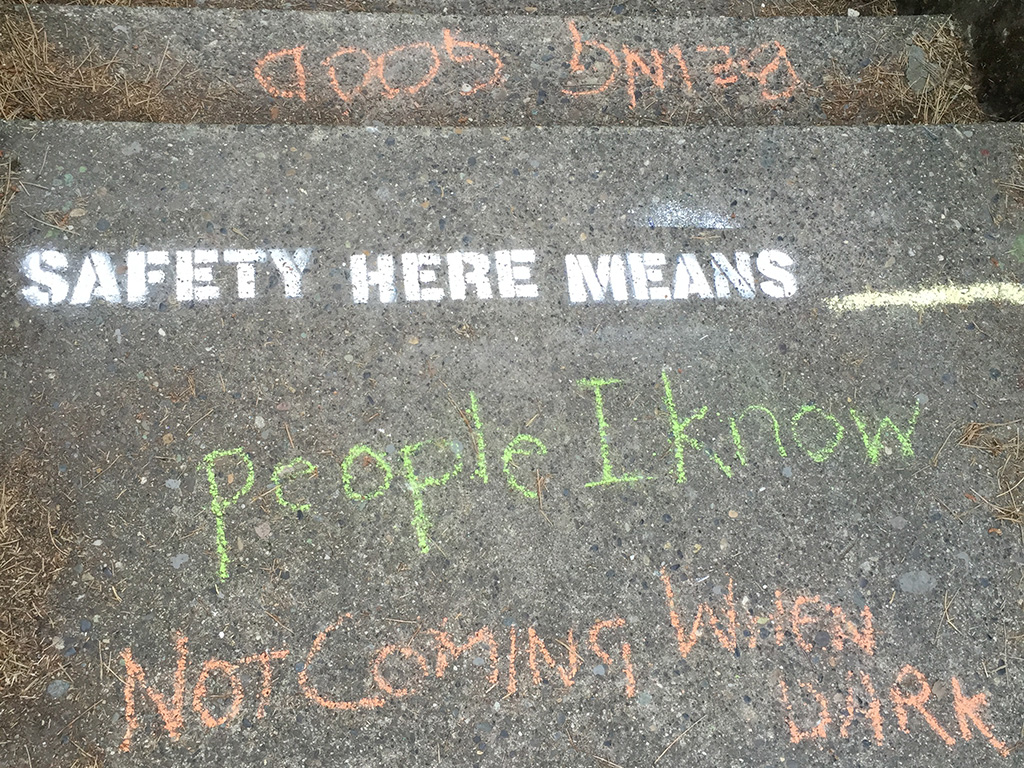 BEING GOOD
SAFETY HERE MEANS
People I know
NOT COMING WHEN
DARK